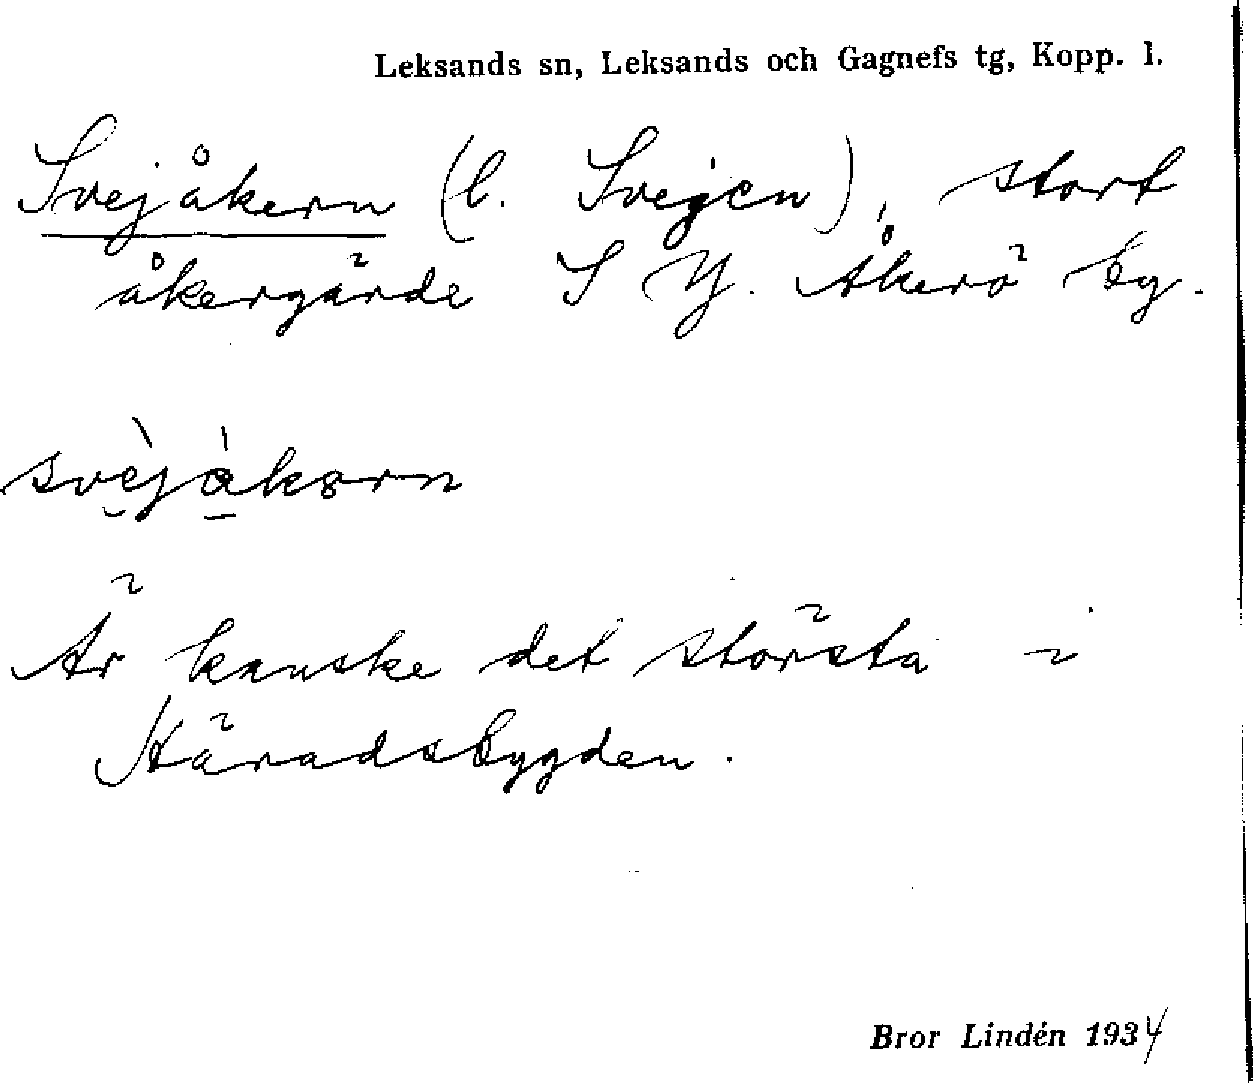 Leksands sn, Leksands och Gagnefs tg, Kopp. l.
Svejåkern (l. Svejen), stort
åkergärde S Y. Åkerö by.
svèjàkərn
Är kanske det största i
Häradsbygden.
Bror Lindén 1934